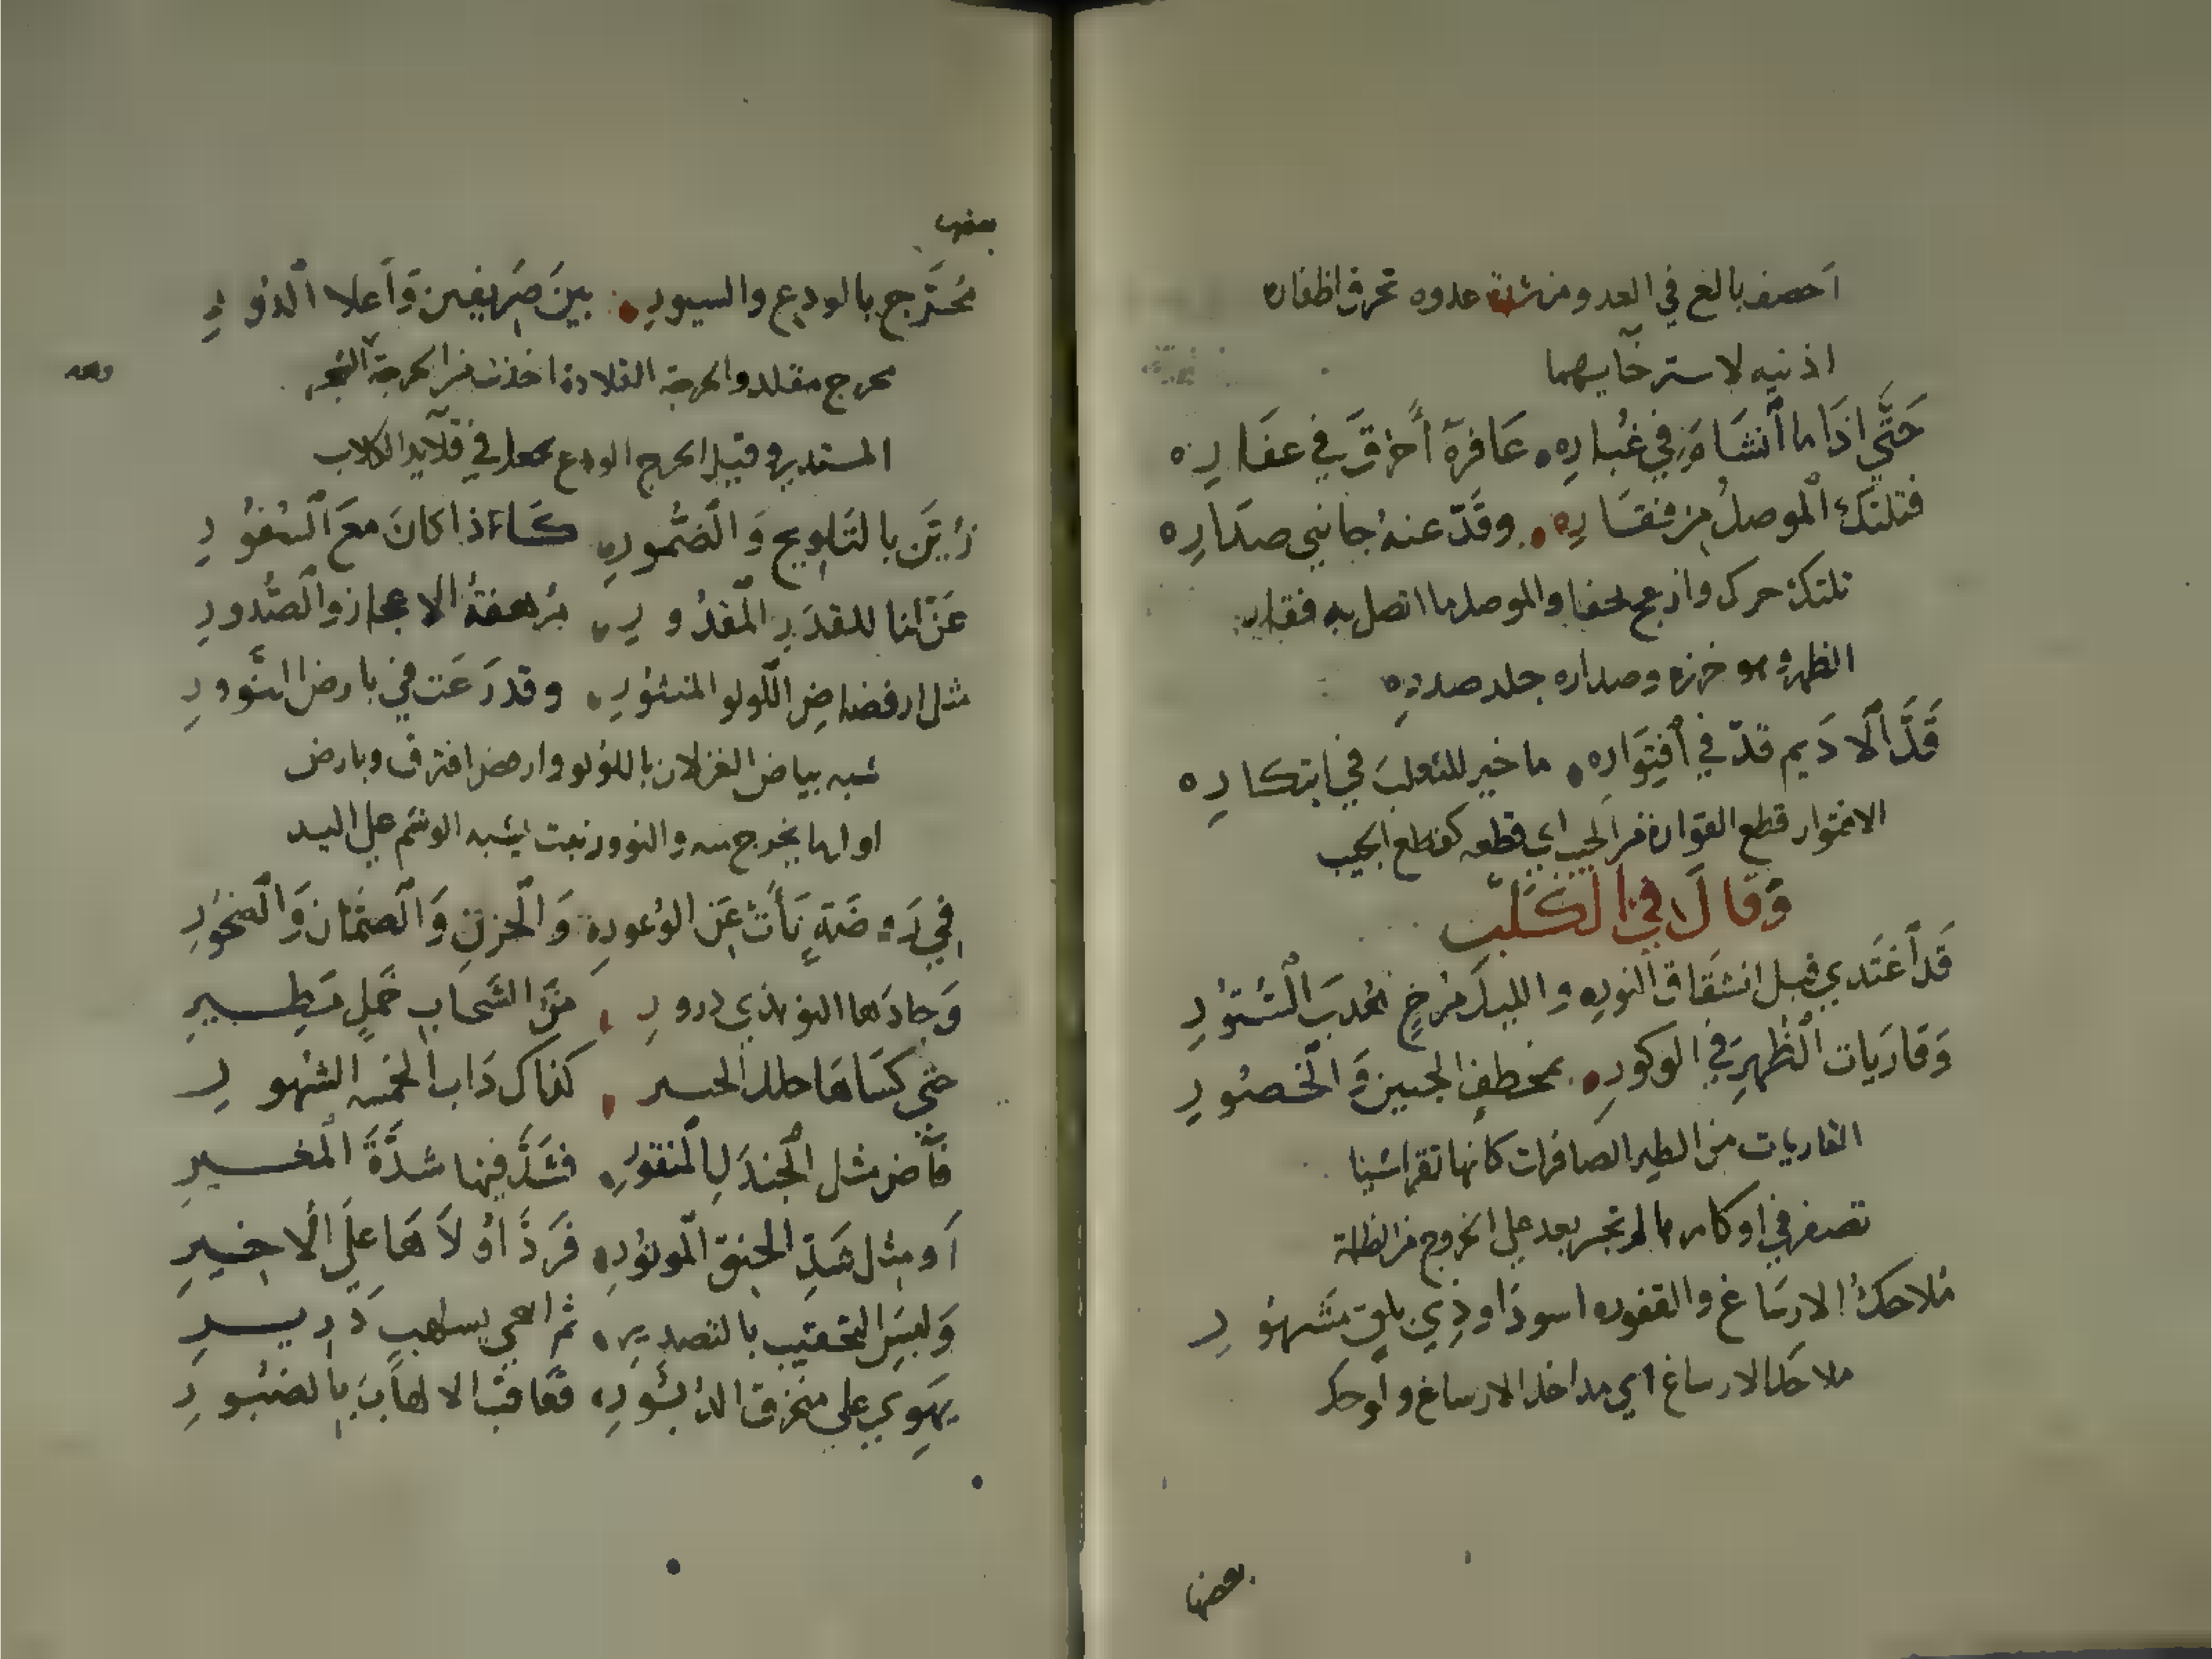 احصف بالغ في العدو ومن شدة عدوه تخرق اظفاره
اذنيه لاسترخآيهما
حَتَّي اذَا ما أنشَامَ في غُبارِه عَافرهُ أخرَقَ في عفَارِه
فتلتَلَ الموصلُ من فقَارِه وقَدّ عنهُ جانبي صدَارِه
تلتل حرك وازعج لحقا والموصل ما اتصل به فقار
الظهر وهو خرزه وصداره جلد صدره
قَدَّ الادَيم قدّ في أقتِوَارِه ما خير للثعلبَ في ابتكارِه
الاقتوار قطع القوارة من الجيب اي قطعه كقطع الجيب
وَقَالَ في الكَلب
قَد أغتَدي قبل انشقاق النور والليلُ مرخٍ هُدبَ السُتوُرِ
وَقاريَات الطَيرِ في الوكورِ بمخطفِ الجبين وَالخصوُرِ
القاريات من الطير الصافرات كانها تقرا شيا
تصفر في اوكارها لم تجسر بعد علي الخروج من الظلمة
مُلاحكُ الارسَاغ والفقور اسودَ او ذِي بلقٍ مَشهوُرِ
ملاحك الارساغ اي مداخل الارساغ ولوحك
بعضها
بعضها
محَرّج بالودع والسيورِ بينَ ضَريفين وَأعلا الدورِ
محرج مقلد والحرجة القلادة اخذت من الحرجة الشجر
المستدير وقيل الحرج الودع يجعل في قلآيد الكلاب
زُيّن بالتَلويح وَالضُّمور كَاءذا كانَ معَ السُفوُرِ
عَنّ لنا للقدَرِ المقدُورِ مُرهفةُ الاعجاز والصُّدورِ
مثل ارفضاضِ اللولو المنثورِ وقد رَعَت في بارض النَّوورِ
شبه بياض الغزلان باللولو وارفض افترق وبارض
اول ما يخرج منه والنوور نبت يشبه الوشم علي اليد
في رَوضَةٍ نَأَت عَن الوُعورِ وَالحزنِ وَالصمَّان وَالصخُورِ
وَجادَها النو بذي درورِ منَ السَّحابِ خملٍ مَطِيرِ
حتي كسَاهَا حلل الحبير كذاك دَاب الخمسه الشهورِ
فآض مثل الجندَلِ المنقورِ فشَدَّ فيها شدَّةَ المغيرِ
أو مثل شَدِّ الحنق الموتوُرِ فَرَدَّ اوُلاهَا علَي الاخيرِ
وَلبسَ التعقيب بالتصديرِ
يهَوِي علي منخرق الدبُورِ فعَاقبَ الالهابَ بالضبورِ